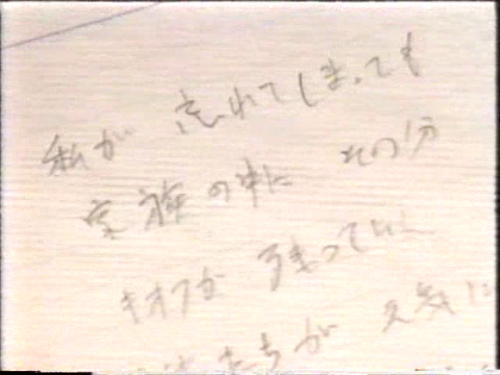 私が 忘れてしまっても
家族の中に その分
キオクが 残っていく
たちが 元気に